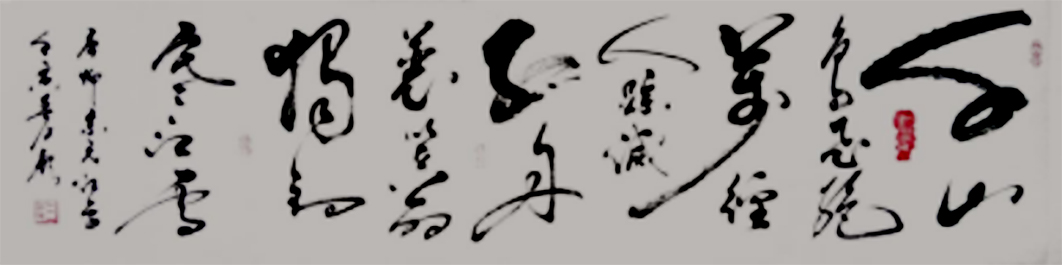 千山
鳥飛絕
萬徑
人踪滅
孤舟
蓑笠翁
獨釣
寒江雪
唐柳宗元江雪